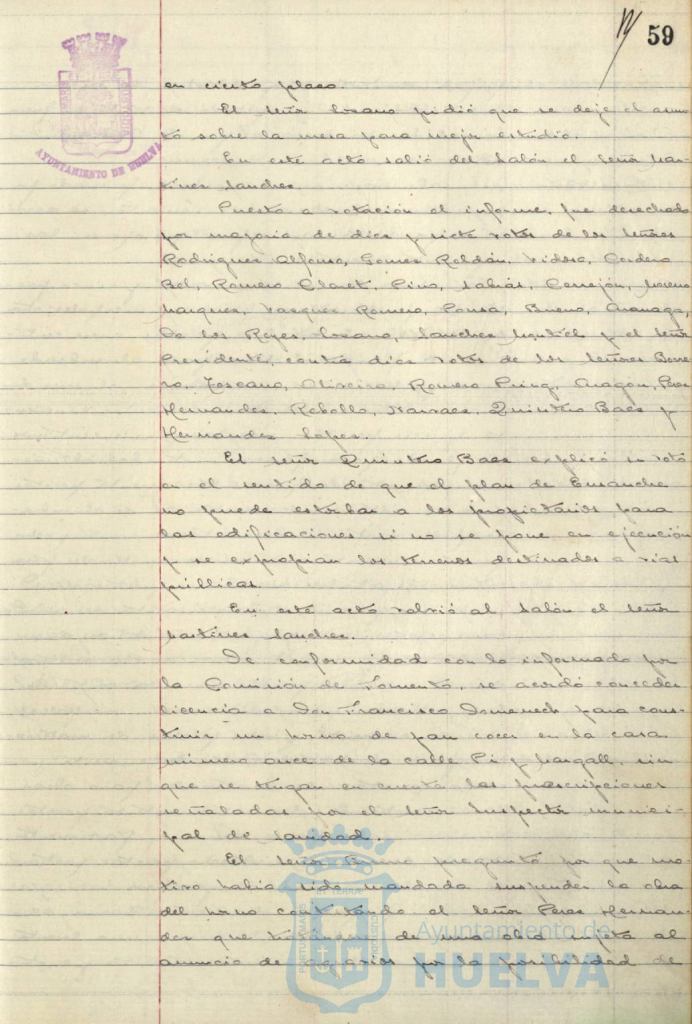 59
AYUNTAMIENTO DE HUELVA
en cierto plazo.
El señor Lozano pidió que se deje el asun-
to sobre la mesa para mejor estudio.
En este acto salió del Salón el Señor Mar-
tínez Sanchez.
Puesto a votación el informe, fue desechado
por mayoria de diez y siete votos de los Señores
Rodriguez Alfonso, Gomez Roldán, Vidosa, Cordero
Bel, Romero Claret, Pino, Sabrás, Cerrejón, Moreno
Marquez, Vazquez Romero, Ponsa, Bueno,
De los Reyes, Lozano, Sanchez Montiel y el Señor
Presidente, contra diez votos de los Señores Borre-
ro, Toscano, Oliveira, Romero Pring, Aragon, Perez
Hernandez, Rebollo, Narvaez, Quintero Baez y
Hernandez Lopez.
El señor Quintero Baez explicó su voto
en el sentido de que el plan de Ensanche
no puede estorbar a los propietarios para
las edificaciones si no se pone en ejecución
y se expropian los terrenos destinados a vias
públicas.
En este acto volvió al Salón el Señor
Martinez Sanchez.
De conformidad con lo informado por
la Comisión de Fomento, se acordó conceder
licencia a Don Francisco Domenech para cons-
truir un horno de pan cocer en la casa
número once de la calle Pi y Margall, sin
que se tengan en cuenta las prescripciones
señaladas por el señor Inspector munici-
pal de Sanidad.
El señor preguntó por que mo-
tivo habia sido mandada suspender la obra
del horno contestando el Señor Perez Hernan-
dez que de una obra sujeta al
anuncio de por la posibilidad de
Ayuntamiento de
HUELVA